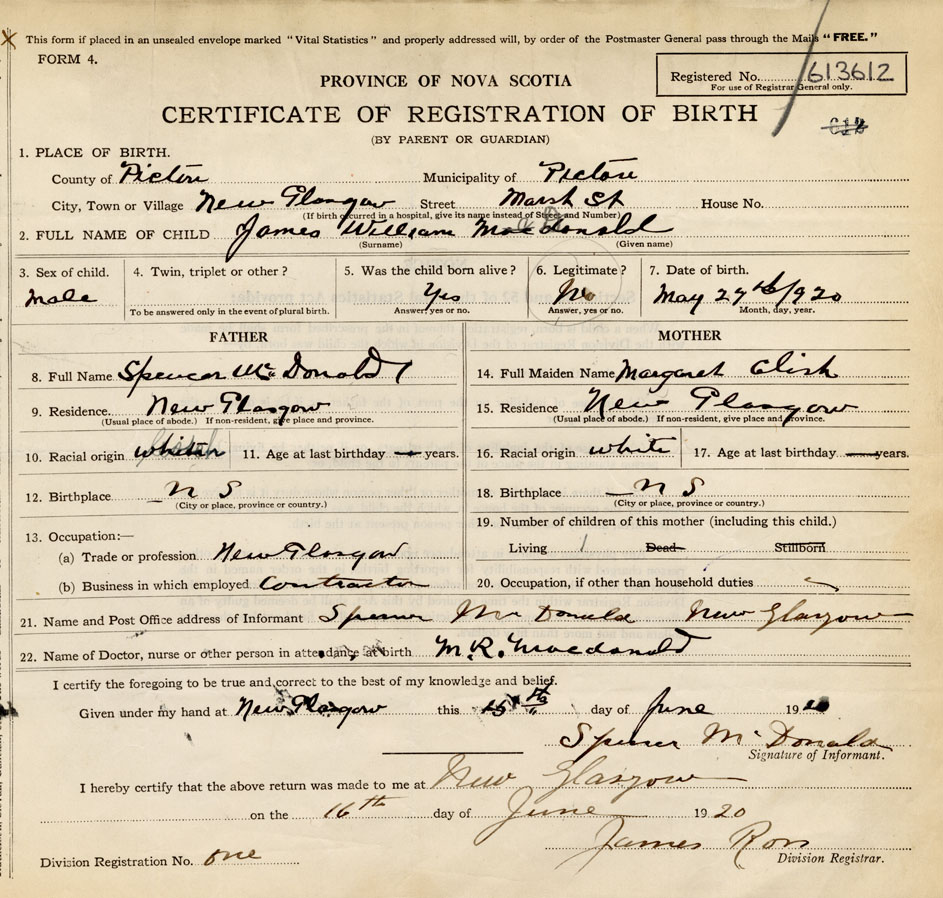 This form if placed in an unsealed envelope marked "Vital Statistics" and properly addressed will, by order of the Postmaster General pass through the Mails "FREE."
FORM 4.
Registered No. 613612
For use of Registrar General only.
PROVINCE OF NOVA SCOTIA
CERTIFICATE OF REGISTRATION OF BIRTH
(BY PARENT OR GUARDIAN)
1. PLACE OF BIRTH.
County of Pictou Municipality of Pictou
City, Town or Village New Glasgow Street Marsh St House No.
(If birth occurred in a hospital, give its name instead of Street and Number)
2. FULL NAME OF CHILD James William MacDonald
(Surname) (Given name)
3. Sex of child. 4. Twin, triplet or other? 5. Was the child born alive? 6. Legitimate? 7. Date of birth.
Male Yes No May 27th 1920
To be answered only in the event of plural birth. Answer, yes or no. Answer, yes or no. Month, day, year.
FATHER MOTHER
8. Full Name Spencer McDonald 14. Full Maiden Name Margaret Clish
9. Residence New Glasgow 15. Residence New Glasgow
(Usual place of abode.) If non-resident, give place and province. (Usual place of abode.) If non-resident, give place and province.
10. Racial origin white 11. Age at last birthday — years. 16. Racial origin white 17. Age at last birthday — years.
12. Birthplace N S 18. Birthplace N S
(City or place, province or country.) (City or place, province or country.)
13. Occupation:— 19. Number of children of this mother (including this child.)
(a) Trade or profession New Glasgow Living 1 Dead Stillborn
(b) Business in which employed Contractor 20. Occupation, if other than household duties
21. Name and Post Office address of Informant Spencer McDonald New Glasgow
22. Name of Doctor, nurse or other person in attendance at birth M.R. Macdonald
I certify the foregoing to be true and correct to the best of my knowledge and belief.
Given under my hand at New Glasgow this 15th day of June 1920
Spencer McDonald
Signature of Informant.
I hereby certify that the above return was made to me at New Glasgow
on the 16th day of June 1920
James Ross
Division Registration No. one Division Registrar.